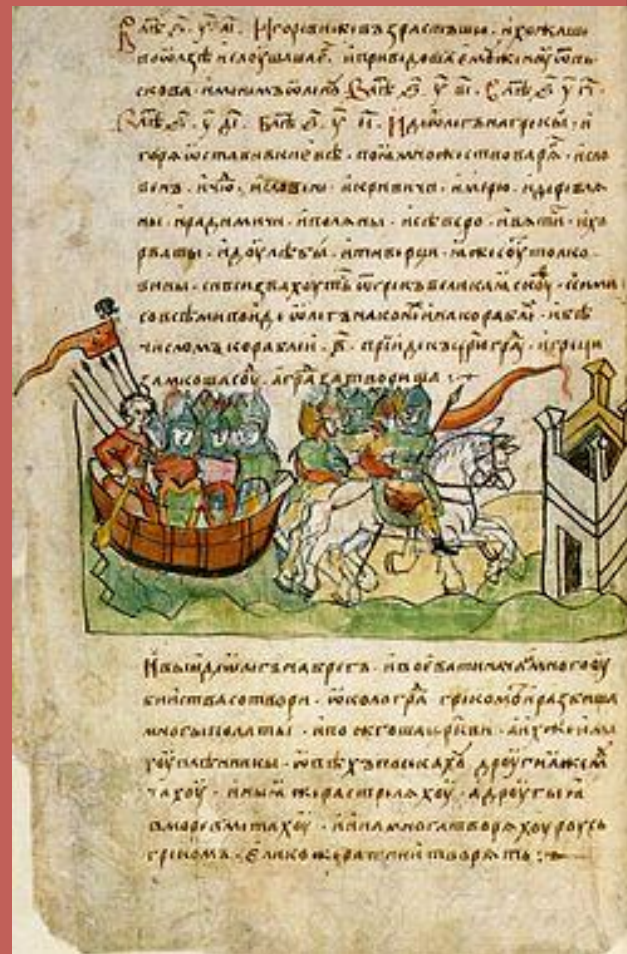 В лѣт҃ ѕ҃ у҃ аі҃ Игореви же възрастъшю и хожаше
по ѡлзѣ и слоушаше его и приведоша емоу женоу ѿ пь
скова именемъ ѡленоу В лѣт҃ ѕ҃ у҃ ві҃ В лѣт҃ ѕ҃ у҃ гі҃
В лѣт҃ ѕ҃ у҃ ді҃ В лѣт҃ ѕ҃ у҃ еі҃ Иде ѡлегъ на грекы и
игоря ѡстави в киевѣ поя множество варя и сло
венъ и чю и словени и кривичи и мерю и деревля
ны и радимичи и поляны и сѣверо и вятичи и хо
рваты и доулѣбы и тиверци яже соуть толко
вины си вси звахоуть ѿ грекъ великая скоуф с сими
со всѣми поиде ѡлегъ на конѣ и на корабле и бѣ
числомъ кораблеи в҃ прииде къ црюграⷣ и греци
замкоша соу а граⷣ затвориша
И выиде ѡлегъ на брегъ и воевати нача и много оу
биства сотвори ѡколо граⷣ грекомъ и разбиша
многы полаты и пожгоша церкви а их же има
хоу плѣнникы ѡвѣхъ посекахоу дроугиа же моу
чахоу иныя же растреляхоу а дроугыя
в море вметахоу и ина многа творяхоу роусь
грекомъ елико же ратнии творять